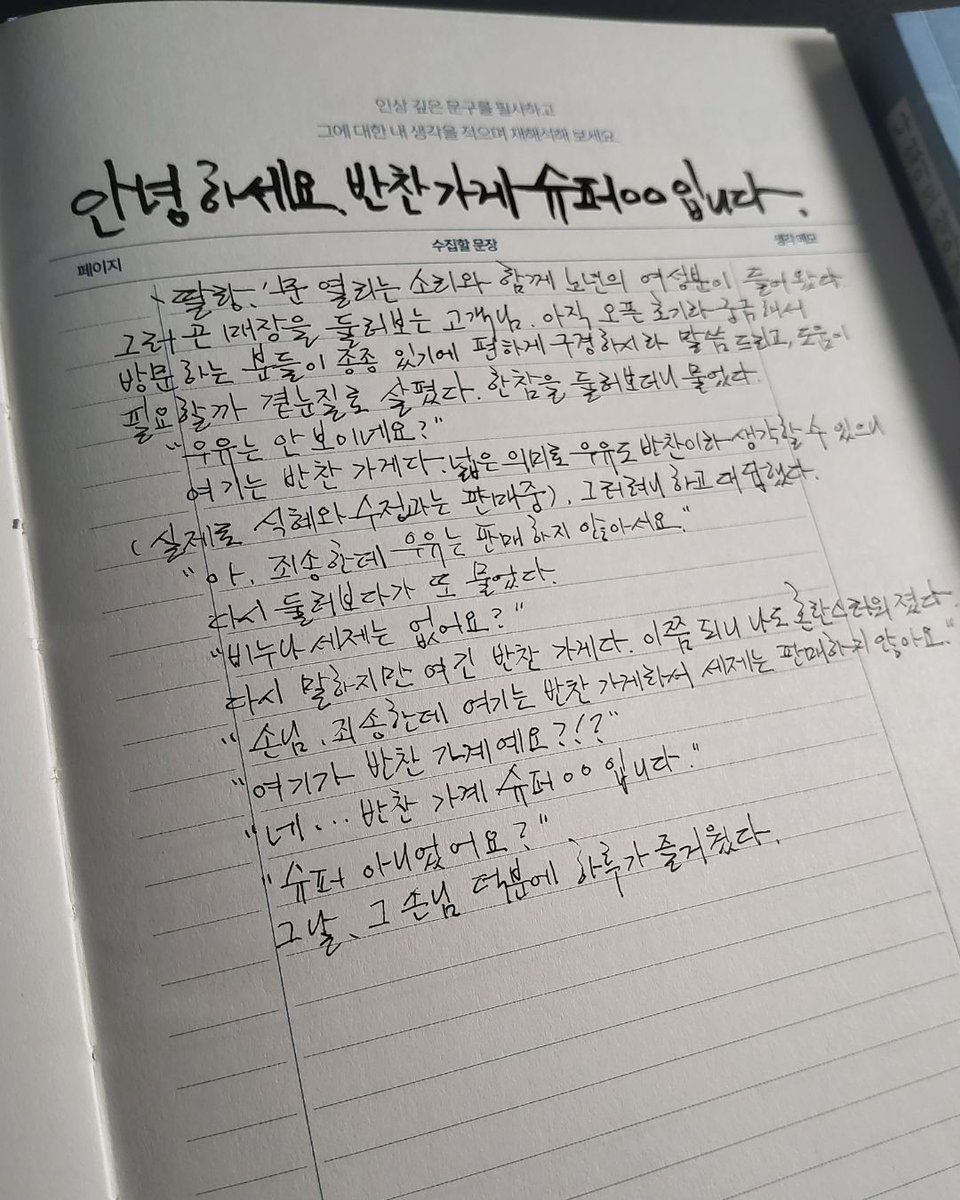 인상 깊은 문구를 필사하고
그에 대한 내 생각을 적으며 재해석해 보세요
안녕하세요. 반찬가게 슈퍼ㅇㅇ입니다.
페이지 수집할 문장 생각 메모
'딸랑!' 문 열리는 소리와 함께 노년의 여성분이 들어왔다
그러곤 매장을 둘러보는 고객님. 아직 오픈 초기라 궁금해서
방문하는 분들이 종종 있기에 편하게 구경하시라 말씀드리고, 도움이
필요할까 곁눈질로 살폈다. 한참을 둘러보더니 물었다.
"우유는 안 보이네요?"
여기는 반찬 가게다. 넓은 의미로 우유도 반찬이라 생각할 수 있으니
(실제로 식혜와 수정과는 판매중). 그러려니 하고 대답했다.
"아, 죄송한데 우유는 판매하지 않아서요."
다시 둘러보다가 또 물었다.
"비누나 세제는 없어요?"
다시 말하지만 여긴 반찬 가게다. 이쯤 되니 나도 혼란스러워졌다.
"손님, 죄송한데 여기는 반찬 가게라서 세제는 판매하지 않아요."
"여기가 반찬 가게예요?!?"
"네... 반찬 가게 슈퍼ㅇㅇ입니다."
"슈퍼 아니었어요?"
그날, 그 손님 덕분에 하루가 즐거웠다.